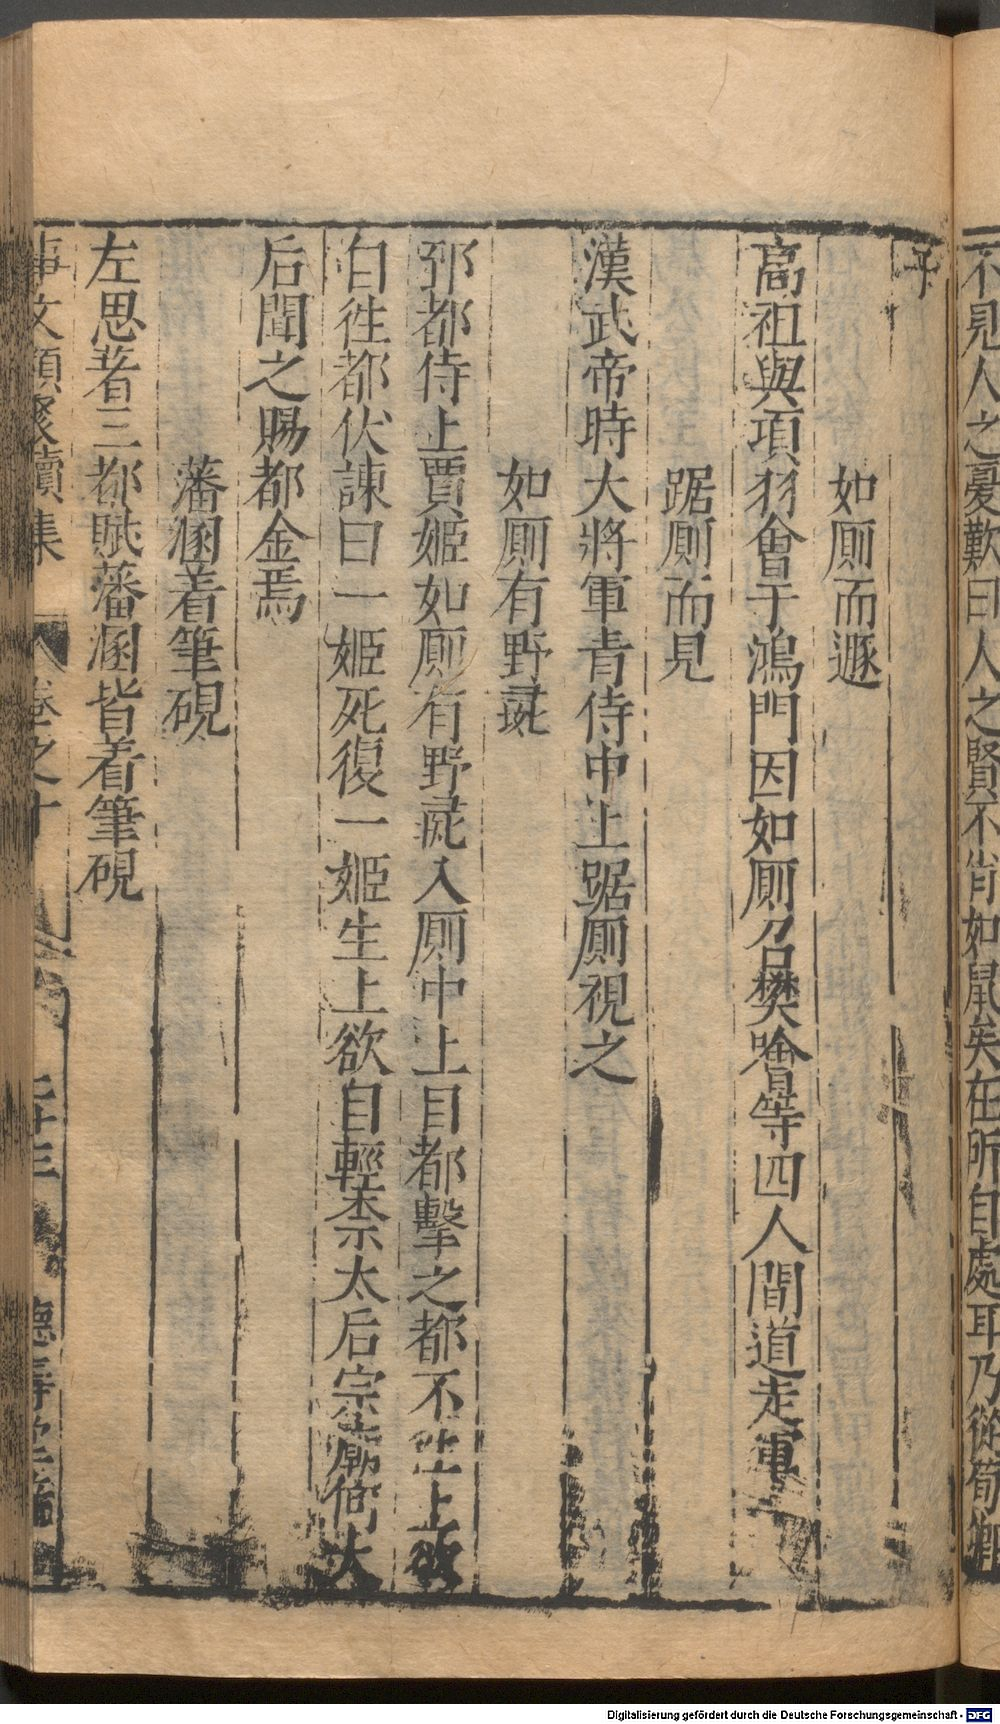 不見人之憂歎曰人之賢不肖如鼠矣在所自處耳乃從荀
子
如厠而遯
高祖與項羽會于鴻門因如厠召樊噲等四人間道走軍
踞厠而見
漢武帝時大將軍青侍中上踞厠視之
如厠有野彘
郅都侍上賈姬如厠有野彘入厠中上目都擊之都不上欲
自徃都伏諫曰一姬死復一姬生上欲自輕柰太后宗廟何太
后聞之賜都金焉
藩溷着筆硯
左思著三都賦藩溷皆着筆硯
事文類聚續集 卷之十 二十三 德壽堂
Digitalisierung gefördert durch die Deutsche Forschungsgemeinschaft - DFG